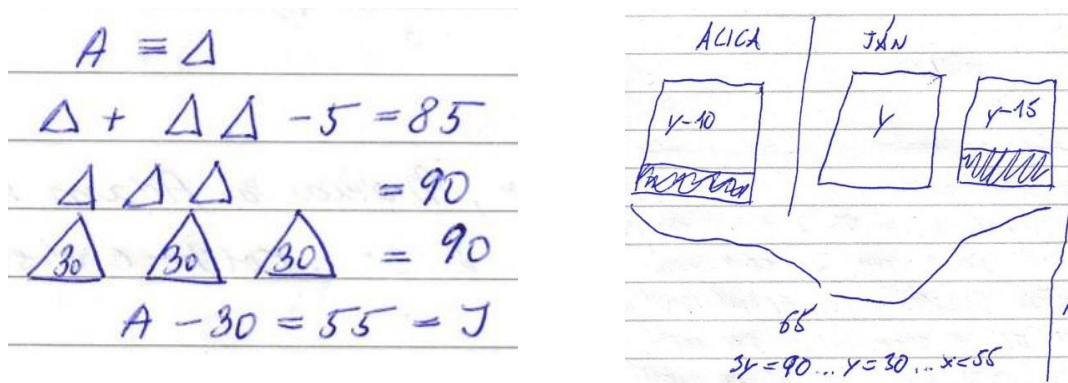 A ≡ Δ
Δ + Δ Δ - 5 = 85
Δ Δ Δ = 90
30 30 30 = 90
A - 30 = 55 = J
ALICA JÁN
y-10 y y-15
65
3y = 90... y = 30... x = 55